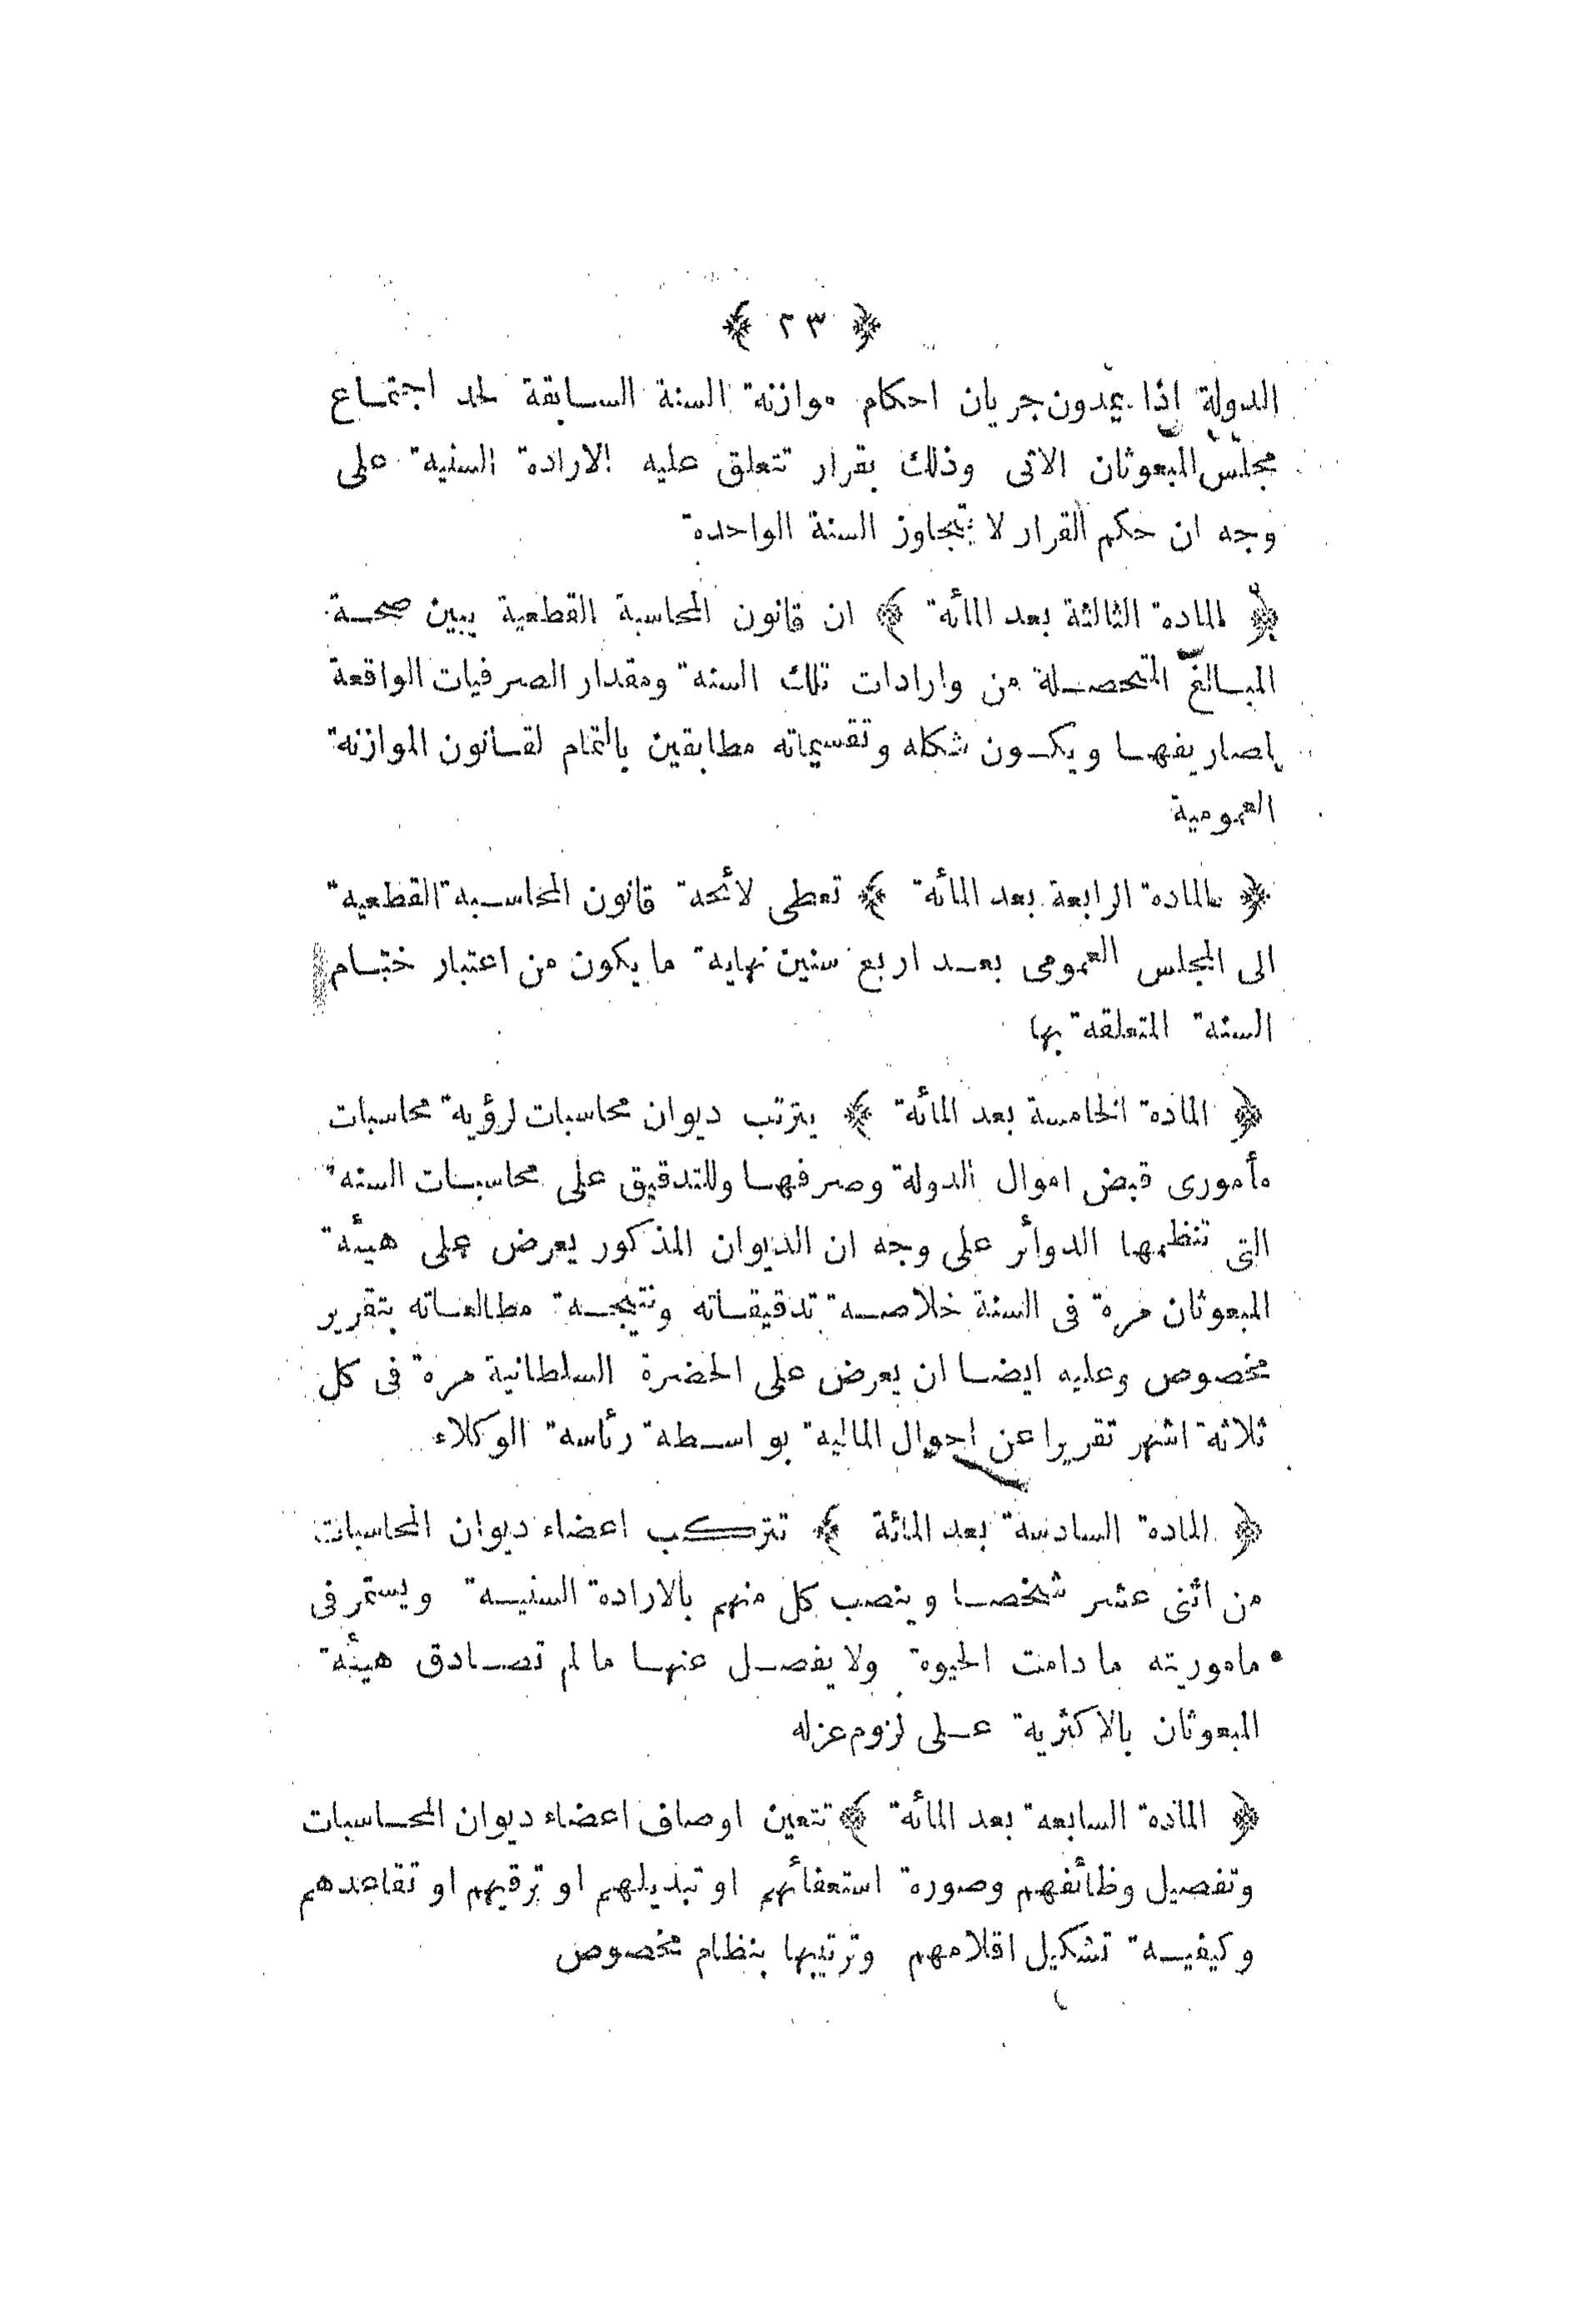 ﴿ ٢٣ ﴾
الدولة اذا يمدون جريان احكام موازنة السنة السابقة لحد اجتماع
مجلس المبعوثان الاتى وذلك بقرار تتعلق عليه الارادة السنية على
وجه ان حكم القرار لا يتجاوز السنة الواحدة
﴿ المادة الثالثة بعد المائة ﴾ ان قانون المحاسبة القطعية يبين صحة
المبالغ المتحصلة من واردات تلك السنة ومقدار الصرفيات الواقعة
لمصاريفها ويكون شكله وتقسيماته مطابقين بالتمام لقانون الموازنة
العمومية
﴿ المادة الرابعة بعد المائة ﴾ تعطى لائحة قانون المحاسبة القطعية
الى المجلس العمومى بعد اربع سنين نهاية ما يكون من اعتبار ختام
السنة المتعلقة بها
﴿ المادة الخامسة بعد المائة ﴾ يترتب ديوان محاسبات لرؤية محاسبات
مأمورى قبض اموال الدولة وصرفها وللتدقيق على محاسبات السنة
التى تنظمها الدوائر على وجه ان الديوان المذكور يعرض على هيئة
المبعوثان مرة فى السنة خلاصة تدقيقاته ونتيجة مطالعاته بتقرير
مخصوص وعليه ايضا ان يعرض على الحضرة السلطانية مرة فى كل
ثلاثة اشهر تقريرا عن احوال المالية بواسطة رئاسة الوكلاء
﴿ المادة السادسة بعد المائة ﴾ تتركب اعضاء ديوان المحاسبات
من اثنى عشر شخصا وينصب كل منهم بالارادة السنية ويستمر فى
ماموريته ما دامت الحيوة ولا يفصل عنها ما لم تصادق هيئة
المبعوثان بالاكثرية على لزوم عزله
﴿ المادة السابعة بعد المائة ﴾ تتعين اوصاف اعضاء ديوان المحاسبات
وتفصيل وظائفهم وصورة استعفائهم او تبديلهم او ترقيهم او تقاعدهم
وكيفية تشكيل اقلامهم وترتيبها بنظام مخصوص